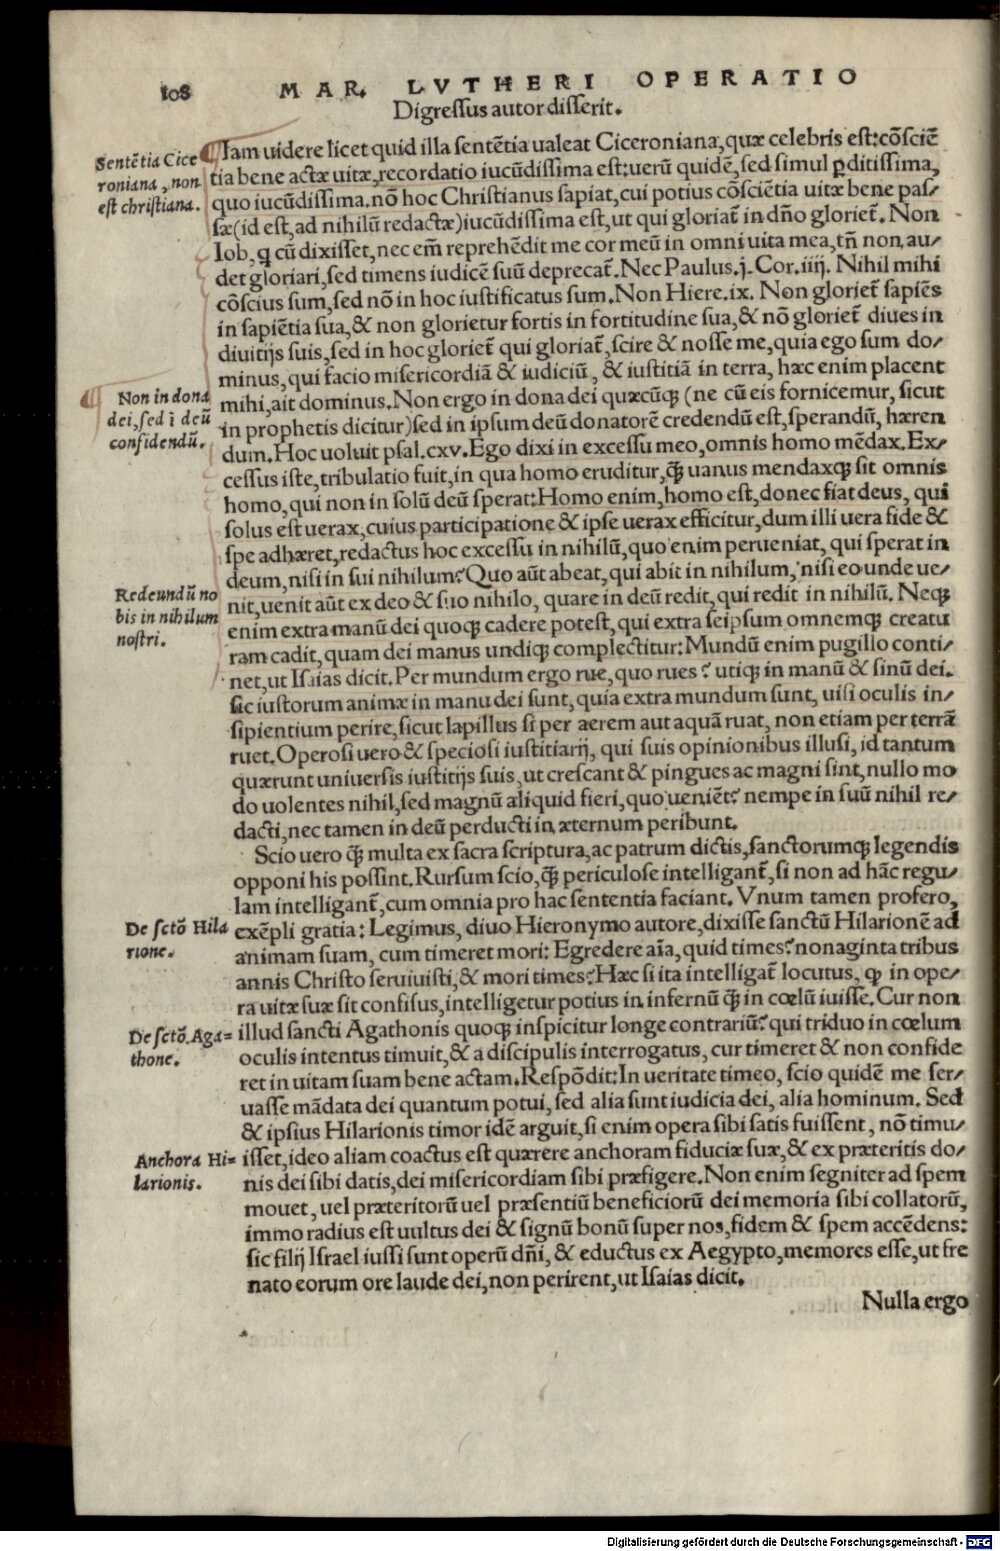 108 MAR. LVTHERI OPERATIO
Digreſſus autor diſſerit.
Sentẽtia Cice
roniana, non
eſt chriſtiana.
Iam uidere licet quid illa ſentẽtia ualeat Ciceroniana, quæ celebris eſt: cõſciẽ
tia bene actæ uitæ, recordatio iucũdiſſima eſt: uerũ quidẽ, ſed simul ꝑditiſſima,
quo iucũdiſſima. nõ hoc Chriſtianus ſapiat, cui potius cõſciẽtia uitæ bene paſ/
ſæ (id eſt, ad nihilũ redactæ) iucũdiſſima eſt, ut qui gloriat̃ in dño gloriet̃. Non
Iob, q cũ dixiſſet, nec em̃ reprehẽdit me cor meũ in omni uita mea, tñ non au/
det gloriari, ſed timens iudicẽ ſuũ deprecat̃. Nec Paulus. j. Cor. iiij. Nihil mihi
cõſcius ſum, ſed nõ in hoc iuſtificatus ſum. Non Hiere. ix. Non gloriet̃ ſapiẽs
in ſapiẽtia ſua, & non glorietur fortis in fortitudine ſua, & nõ gloriet̃ diues in
diuitijs ſuis, ſed in hoc gloriet̃ qui gloriat̃, ſcire & noſſe me, quia ego ſum do/
minus, qui facio miſericordiã & iudiciũ, & iuſtitiã in terra, hæc enim placent
Non in dona
dei, ſed ĩ deũ
confidendũ.
mihi, ait dominus. Non ergo in dona dei quæcũqꝫ (ne cũ eis fornicemur, ſicut
in prophetis dicitur) ſed in ipſum deũ donatorẽ credendũ eſt, ſperandũ, hæren
dum. Hoc uoluit pſal. cxv. Ego dixi in exceſſu meo, omnis homo mẽdax. Ex/
ceſſus iſte, tribulatio fuit, in qua homo eruditur, q̃ꝫ uanus mendaxqꝫ ſit omnis
homo, qui non in ſolũ deũ ſperat: Homo enim, homo eſt, donec fiat deus, qui
ſolus eſt uerax, cuius participatione & ipſe uerax efficitur, dum illi uera fide &
ſpe adhæret, redactus hoc exceſſu in nihilũ, quo enim perueniat, qui ſperat in
deum, niſi in ſui nihilum? Quo aũt abeat, qui abit in nihilum, niſi eo unde ue/
Redeundũ no
bis in nihilum
noſtri.
nit, uenit aũt ex deo & ſuo nihilo, quare in deũ redit, qui redit in nihilũ. Neqꝫ
enim extra manũ dei quoqꝫ cadere poteſt, qui extra ſeipſum omnemqꝫ creatu
ram cadit, quam dei manus undiqꝫ complectitur: Mundũ enim pugillo conti/
net, ut Iſaias dicit. Per mundum ergo rue, quo rues? utiqꝫ in manũ & ſinũ dei.
ſic iuſtorum animæ in manu dei ſunt, quia extra mundum ſunt, uiſi oculis in/
ſipientium perire, ſicut lapillus ſi per aerem aut aquã ruat, non etiam per terrã
ruet. Operoſi uero & ſpecioſi iuſtitiarij, qui ſuis opinionibus illuſi, id tantum
quærunt uniuerſis iuſtitijs ſuis, ut creſcant & pingues ac magni ſint, nullo mo
do uolentes nihil, ſed magnũ aliquid fieri, quo ueniẽt? nempe in ſuũ nihil re/
dacti, nec tamen in deũ perducti in æternum peribunt.
Scio uero q̃ꝫ multa ex ſacra ſcriptura, ac patrum dictis, ſanctorumqꝫ legendis
opponi his poſſint. Rurſum ſcio, q̃ꝫ periculoſe intelligant̃, ſi non ad hãc regu/
lam intelligant̃, cum omnia pro hac ſententia faciant. Vnum tamen profero,
De ſctõ Hila
rione.
exẽpli gratia: Legimus, diuo Hieronymo autore, dixiſſe ſanctũ Hilarionẽ ad
animam ſuam, cum timeret mori: Egredere aĩa, quid times? nonaginta tribus
annis Chriſto ſeruiuiſti, & mori times? Hæc ſi ita intelligat̃ locutus, ꝙ in ope/
ra uitæ ſuæ ſit confiſus, intelligetur potius in infernũ q̃ꝫ in cœlũ iuiſſe. Cur non
De ſctõ. Aga=
thone.
illud ſancti Agathonis quoqꝫ inſpicitur longe contrariũ? qui triduo in cœlum
oculis intentus timuit, & a diſcipulis interrogatus, cur timeret & non confide
ret in uitam ſuam bene actam. Reſpõdit: In ueritate timeo, ſcio quidẽ me ſer/
uaſſe mãdata dei quantum potui, ſed alia ſunt iudicia dei, alia hominum. Sed
& ipſius Hilarionis timor idẽ arguit, ſi enim opera ſibi ſatis fuiſſent, nõ timu/
Anchora Hi=
larionis.
iſſet, ideo aliam coactus eſt quærere anchoram fiduciæ ſuæ, & ex præteritis do/
nis dei ſibi datis, dei miſericordiam ſibi præfigere. Non enim ſegniter ad ſpem
mouet, uel præteritorũ uel præſentiũ beneficiorũ dei memoria ſibi collatorũ,
immo radius eſt uultus dei & ſignũ bonũ ſuper nos, fidem & ſpem accẽdens:
ſic filij Iſrael iuſſi ſunt operũ dñi, & eductus ex Aegypto, memores eſſe, ut fre
nato eorum ore laude dei, non perirent, ut Iſaias dicit.
Nulla ergo
Digitalisierung gefördert durch die Deutsche Forschungsgemeinschaft - DFG